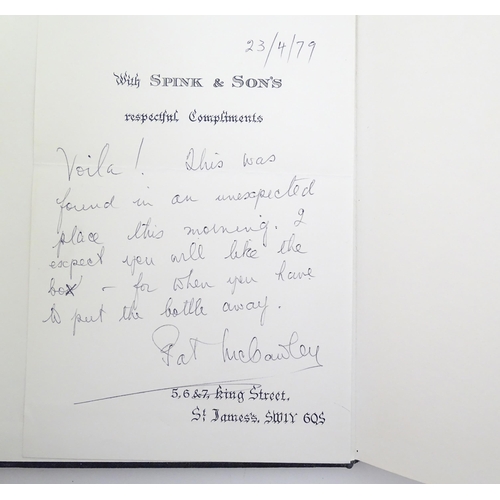 23/4/79
With SPINK & SON'S
respectful Compliments
Voila! This was
found in an unexpected
place this morning. I
expect you will like the
box - for when you have
to put the bottle away.
Pat McCawley
5, 6 & 7, King Street.
St James's. SW1Y 6QS